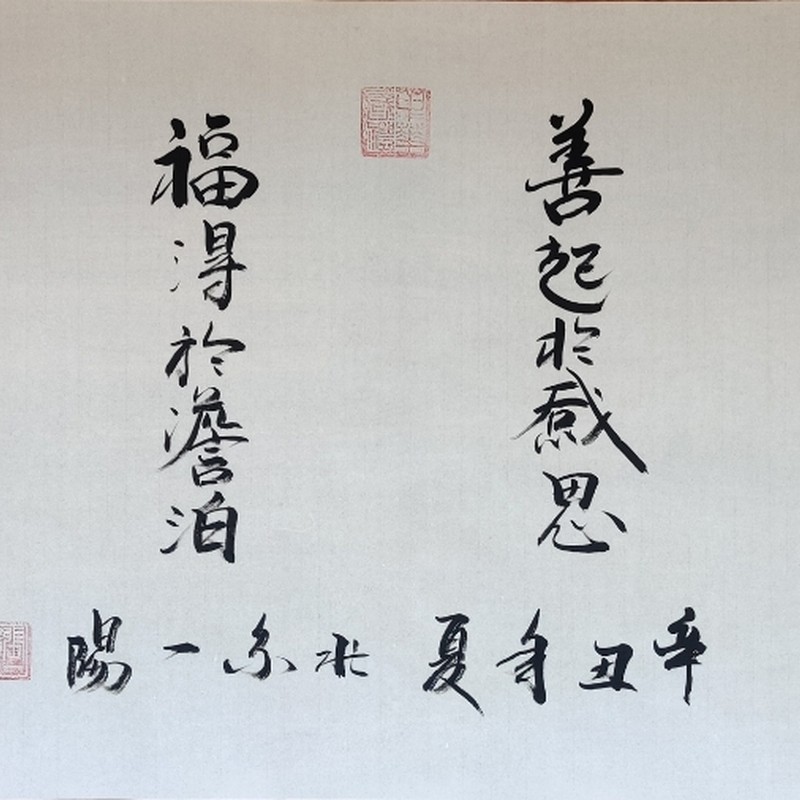 善起於感恩
福得於澹泊
辛丑年夏北京一陽